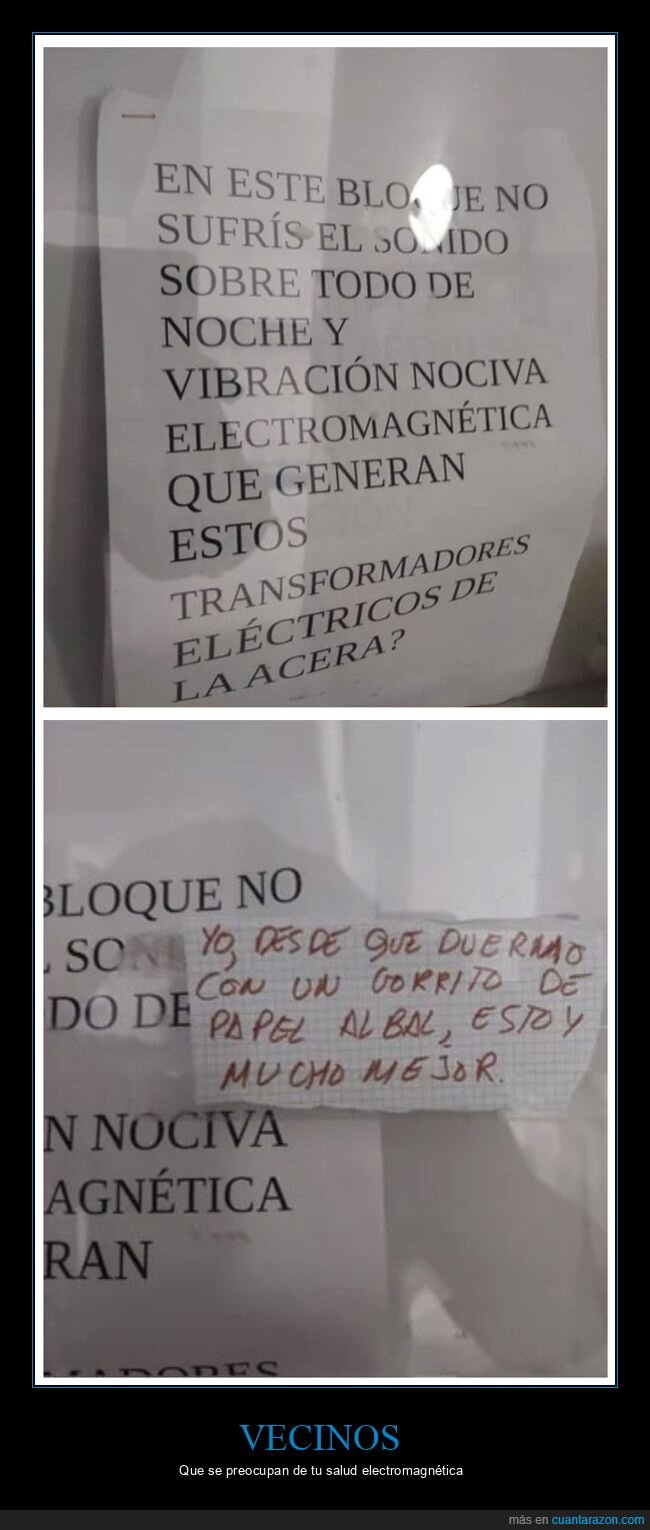 EN ESTE BLOQUE NO
SUFRÍS EL SONIDO
SOBRE TODO DE
NOCHE Y
VIBRACIÓN NOCIVA
ELECTROMAGNÉTICA
QUE GENERAN
ESTOS
TRANSFORMADORES
ELÉCTRICOS DE
LA ACERA?
BLOQUE NO
L SONI
DO DE
YO, DESDE QUE DUERMO
CON UN GORRITO DE
PAPEL ALBAL, ESTOY
MUCHO MEJOR.
N NOCIVA
AGNÉTICA
RAN
MADORES
VECINOS
Que se preocupan de tu salud electromagnética
más en cuantarazon.com